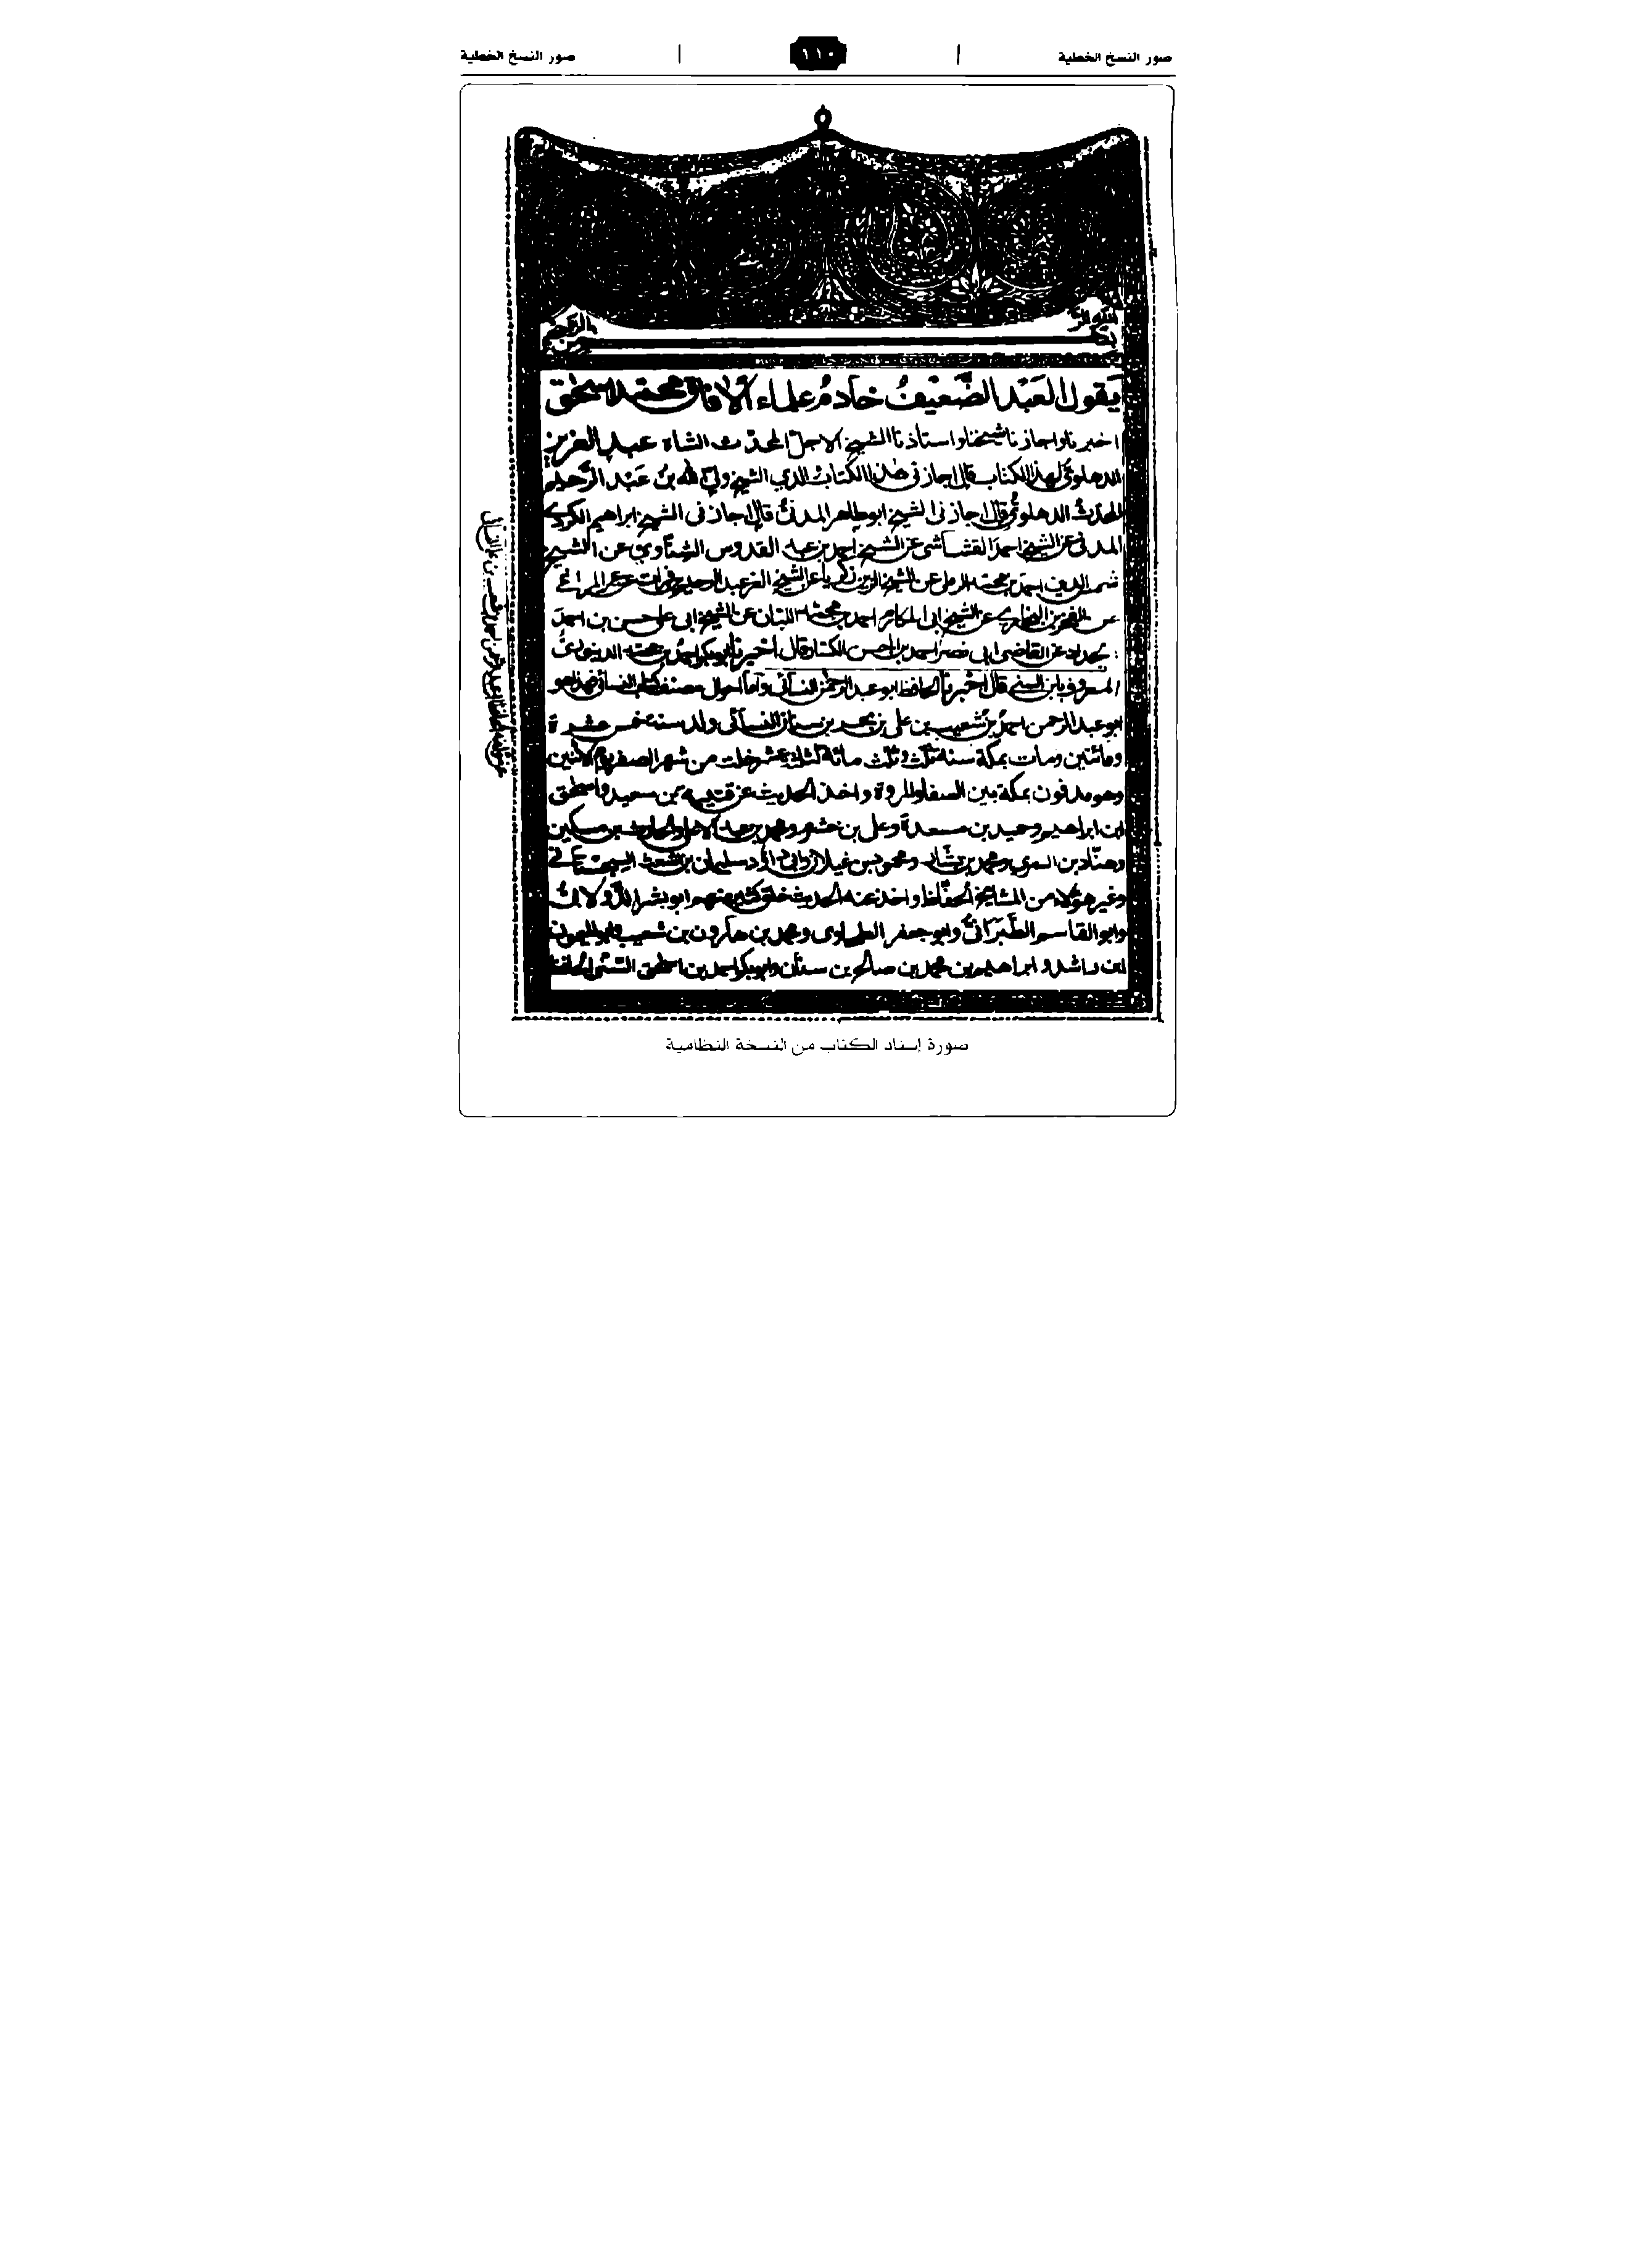 صور النسخ الخطية
١١٠
صور النسخ الخطية
يقول العَبْد الضَّعيْفُ خَادمُ علماء الافاق محمد اسحٰق
اخبرنا واجازنا شيخنا واستاذنا الشيخ الاجل المحدث الشاه عبد العزيز
الدهلوى لهذا الكتاب قال اجازنى هذا الكتاب الدي الشيخ ولي الله بن عَبْد الرَّحيم
المحدث الدهلوى قال اجازنى الشيخ ابو طاهر المدنى قال اجازنى الشيخ ابراهيم الكردى
المدنى عن الشيخ احمد القشاشى عن الشيخ احمد بن عبد القدوس الشناوى عن الشيخ
شمس الدين احمد بن محمد الرملى عن الشيخ الزين زكريا عن الشيخ العز عبد الرحيم بن فرات عن عمر المراغى
عن الفخر بن البخارى عن الشيخ ابى المكارم احمد بن محمد اللبان عن الشيخ ابى على حسن بن احمد
عن القاضى ابى نصر احمد بن الحسن الكسار قال اخبرنا ابو بكر احمد بن محمد الدينورى
المعروف بابن السنى قال اخبرنا الحافظ ابو عبد الرحمن النسائى واما احوال مصنف كتاب النسائى فهذا هو
ابو عبد الرحمن احمد بن شعيب بن على بن بحر بن سنان النسائى ولد سنة خمس عشرة
ومائتين ومات بمكة سنة ثلث وثلث مائة لثلث عشر خلت من شهر الصفر يوم الاثنين
وهو مدفون بمكة بين الصفا والمروة واخذ الحديث عن قتيبة بن سعيد واسحٰق
ابن ابراهيم وحميد بن مسعدة وعلى بن خشرم ومحمد بن عبد الاعلى والحارث بن مسكين
وهناد بن السرى ومحمد بن بشار ومحمود بن غيلان وابى داؤد سليمان بن اشعث السجستانى
وغير هؤلاء من المشايخ الحفاظ واخذ عنه الحديث خلق كثير منهم ابو بشر الدَّولابى
وابو القاسم الطَّبَرَانى وابو جعفر الطحاوى ومحمد بن هارون بن شعيب وابو الميمون
ابن راشد وابراهيم بن محمد بن صالح بن سنان وابو بكر احمد بن اسحٰق السنى الحافظ
صورة إسناد الكتاب من النسخة النظامية